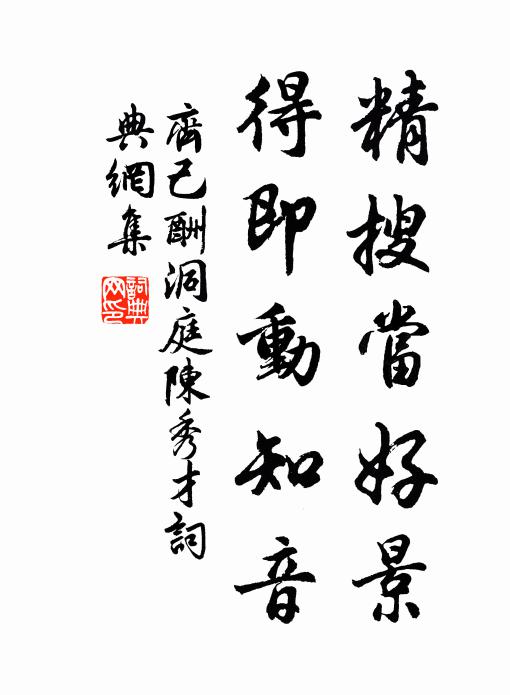 精搜當好景
得即動知音
齊己酬洞庭陳秀才詞
典網集
詞典
网印